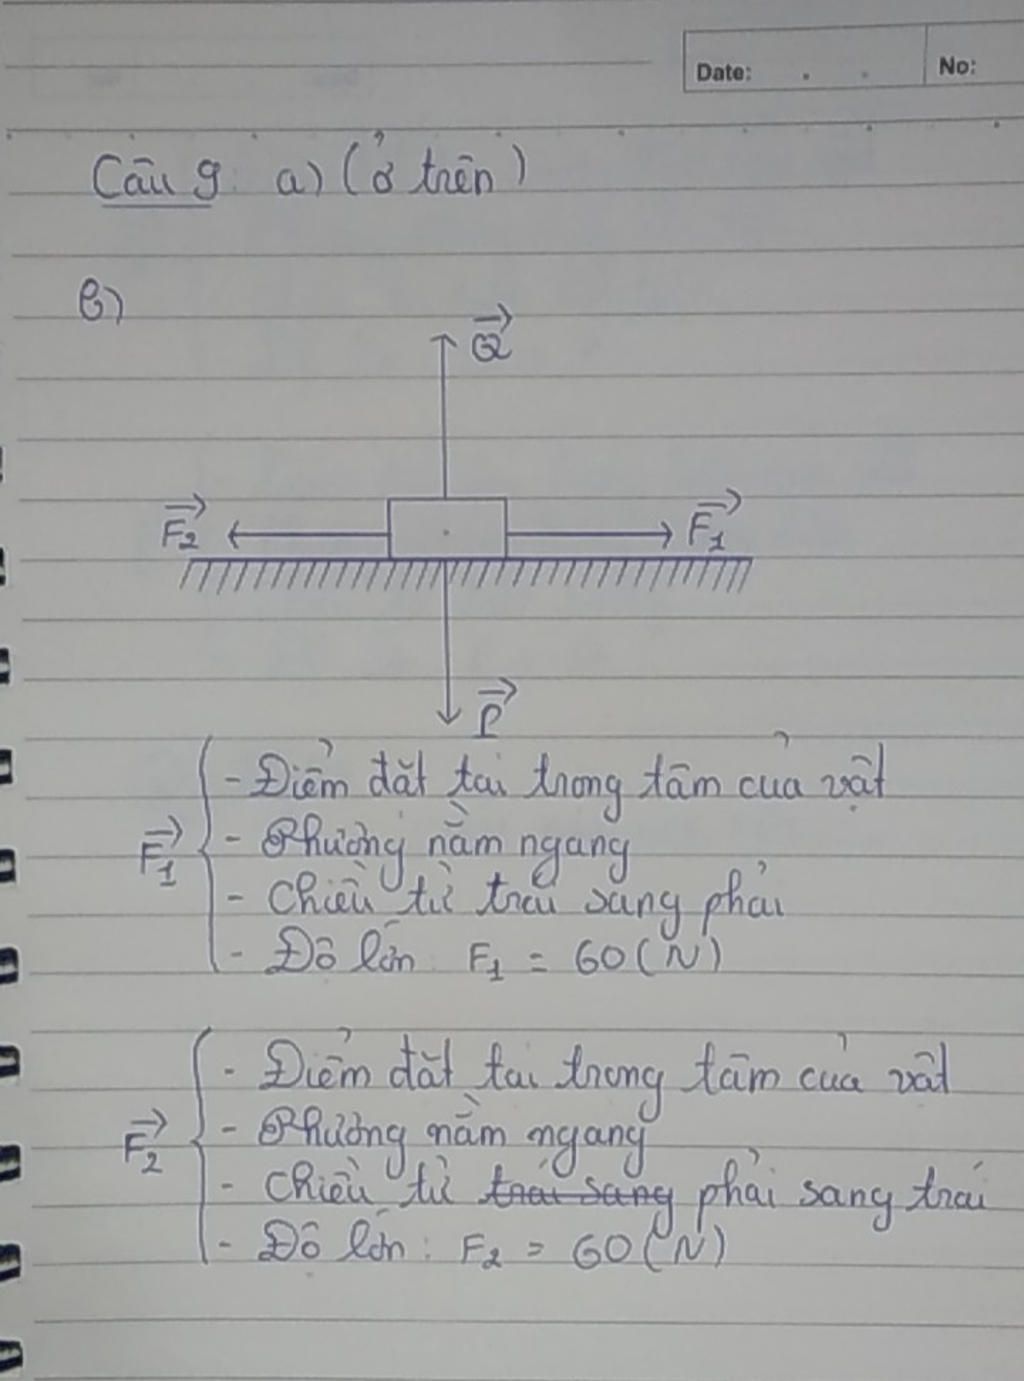 Date: . . No:
Câu 9: a) (ở trên)
b)
Q
F2 F1
P
- Điểm đặt tại trọng tâm của vật
- Phương nằm ngang
F1
- Chiều từ trái sang phải
- Độ lớn: F1 = 60 (N)
- Điểm đặt tại trọng tâm của vật
- Phương nằm ngang
F2
- Chiều từ trái sang phải sang trái
- Độ lớn: F2 = 60 (N)